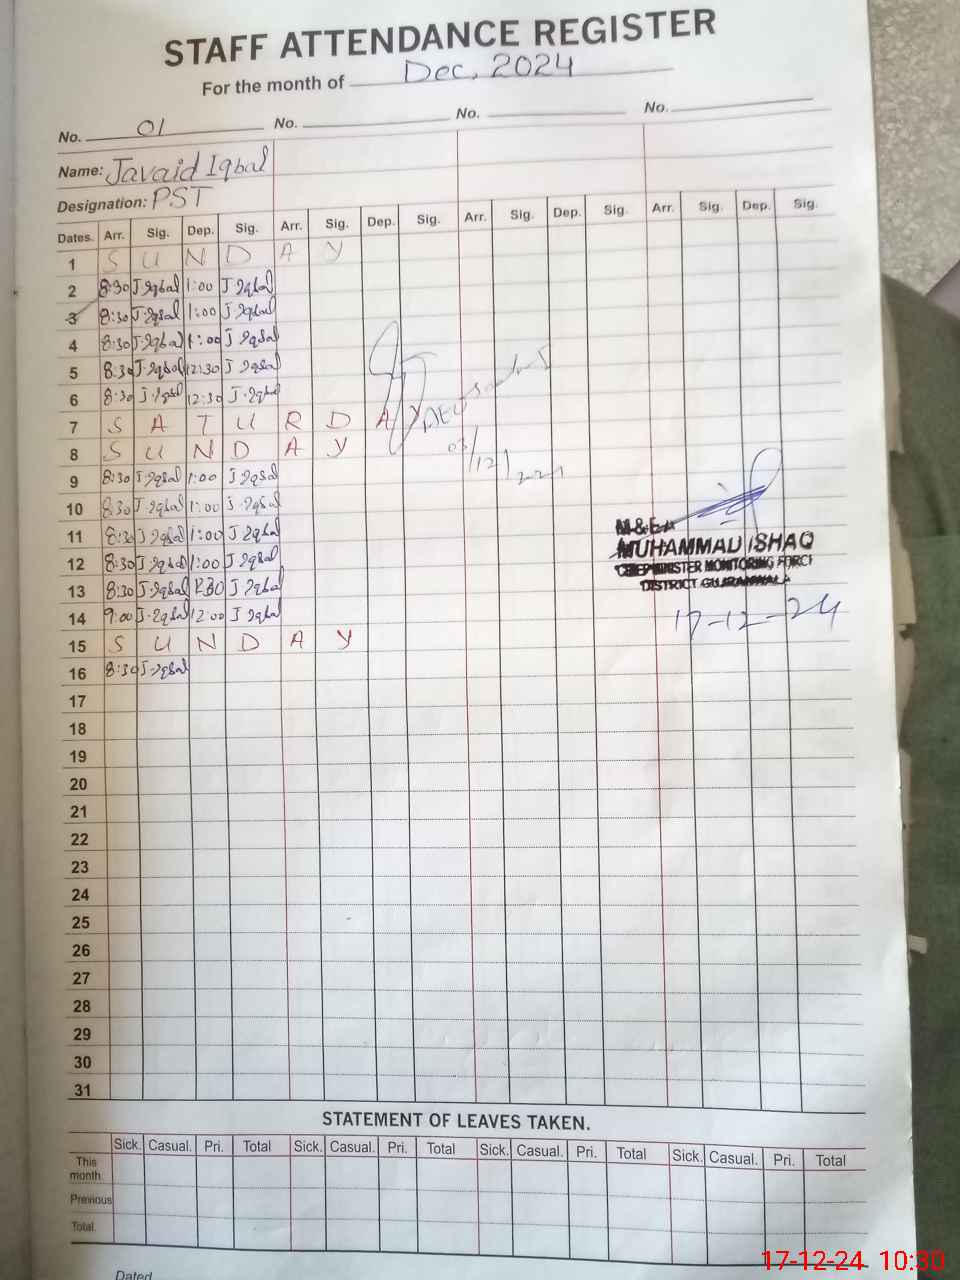 STAFF ATTENDANCE REGISTER
For the month of Dec, 2024
No. 01 No. No. No.
Name: Javaid Iqbal
Designation: PST
Dates. Arr. Sig. Dep. Sig. Arr. Sig. Dep. Sig. Arr. Sig. Dep. Sig. Arr. Sig. Dep. Sig.
1 S U N D A Y
2 8:30 J-Iqbal 1:00 J-Iqbal
3 8:30 J-Iqbal 1:00 J-Iqbal
4 8:30 J-Iqbal 1:00 J-Iqbal
5 8:30 J-Iqbal 12:30 J-Iqbal
6 8:30 J-Iqbal 12:30 J-Iqbal
7 S A T U R D A Y
8 S U N D A Y
03/12/2024
9 8:30 J-Iqbal 1:00 J-Iqbal
10 8:30 J-Iqbal 1:00 J-Iqbal
11 8:30 J-Iqbal 1:00 J-Iqbal
12 8:30 J-Iqbal 1:00 J-Iqbal
13 8:30 J-Iqbal J-Iqbal
14 9:00 J-Iqbal 12:00 J-Iqbal
15 S U N D A Y
16 8:30 J-Iqbal
M & E A
MUHAMMAD ISHAQ
CHIEF MINISTER MONITORING FORCE
DISTRICT GUJRANWALA
17-12-24
17
18
19
20
21
22
23
24
25
26
27
28
29
30
31
STATEMENT OF LEAVES TAKEN.
Sick. Casual. Pri. Total Sick. Casual. Pri. Total Sick. Casual. Pri. Total Sick. Casual. Pri. Total
This
month
Previous
Total.
Dated
17-12-24 10:30